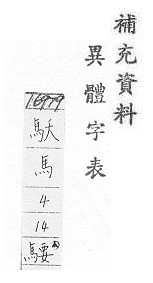 補充資料
異體字表
16979
馬
4
14
騕